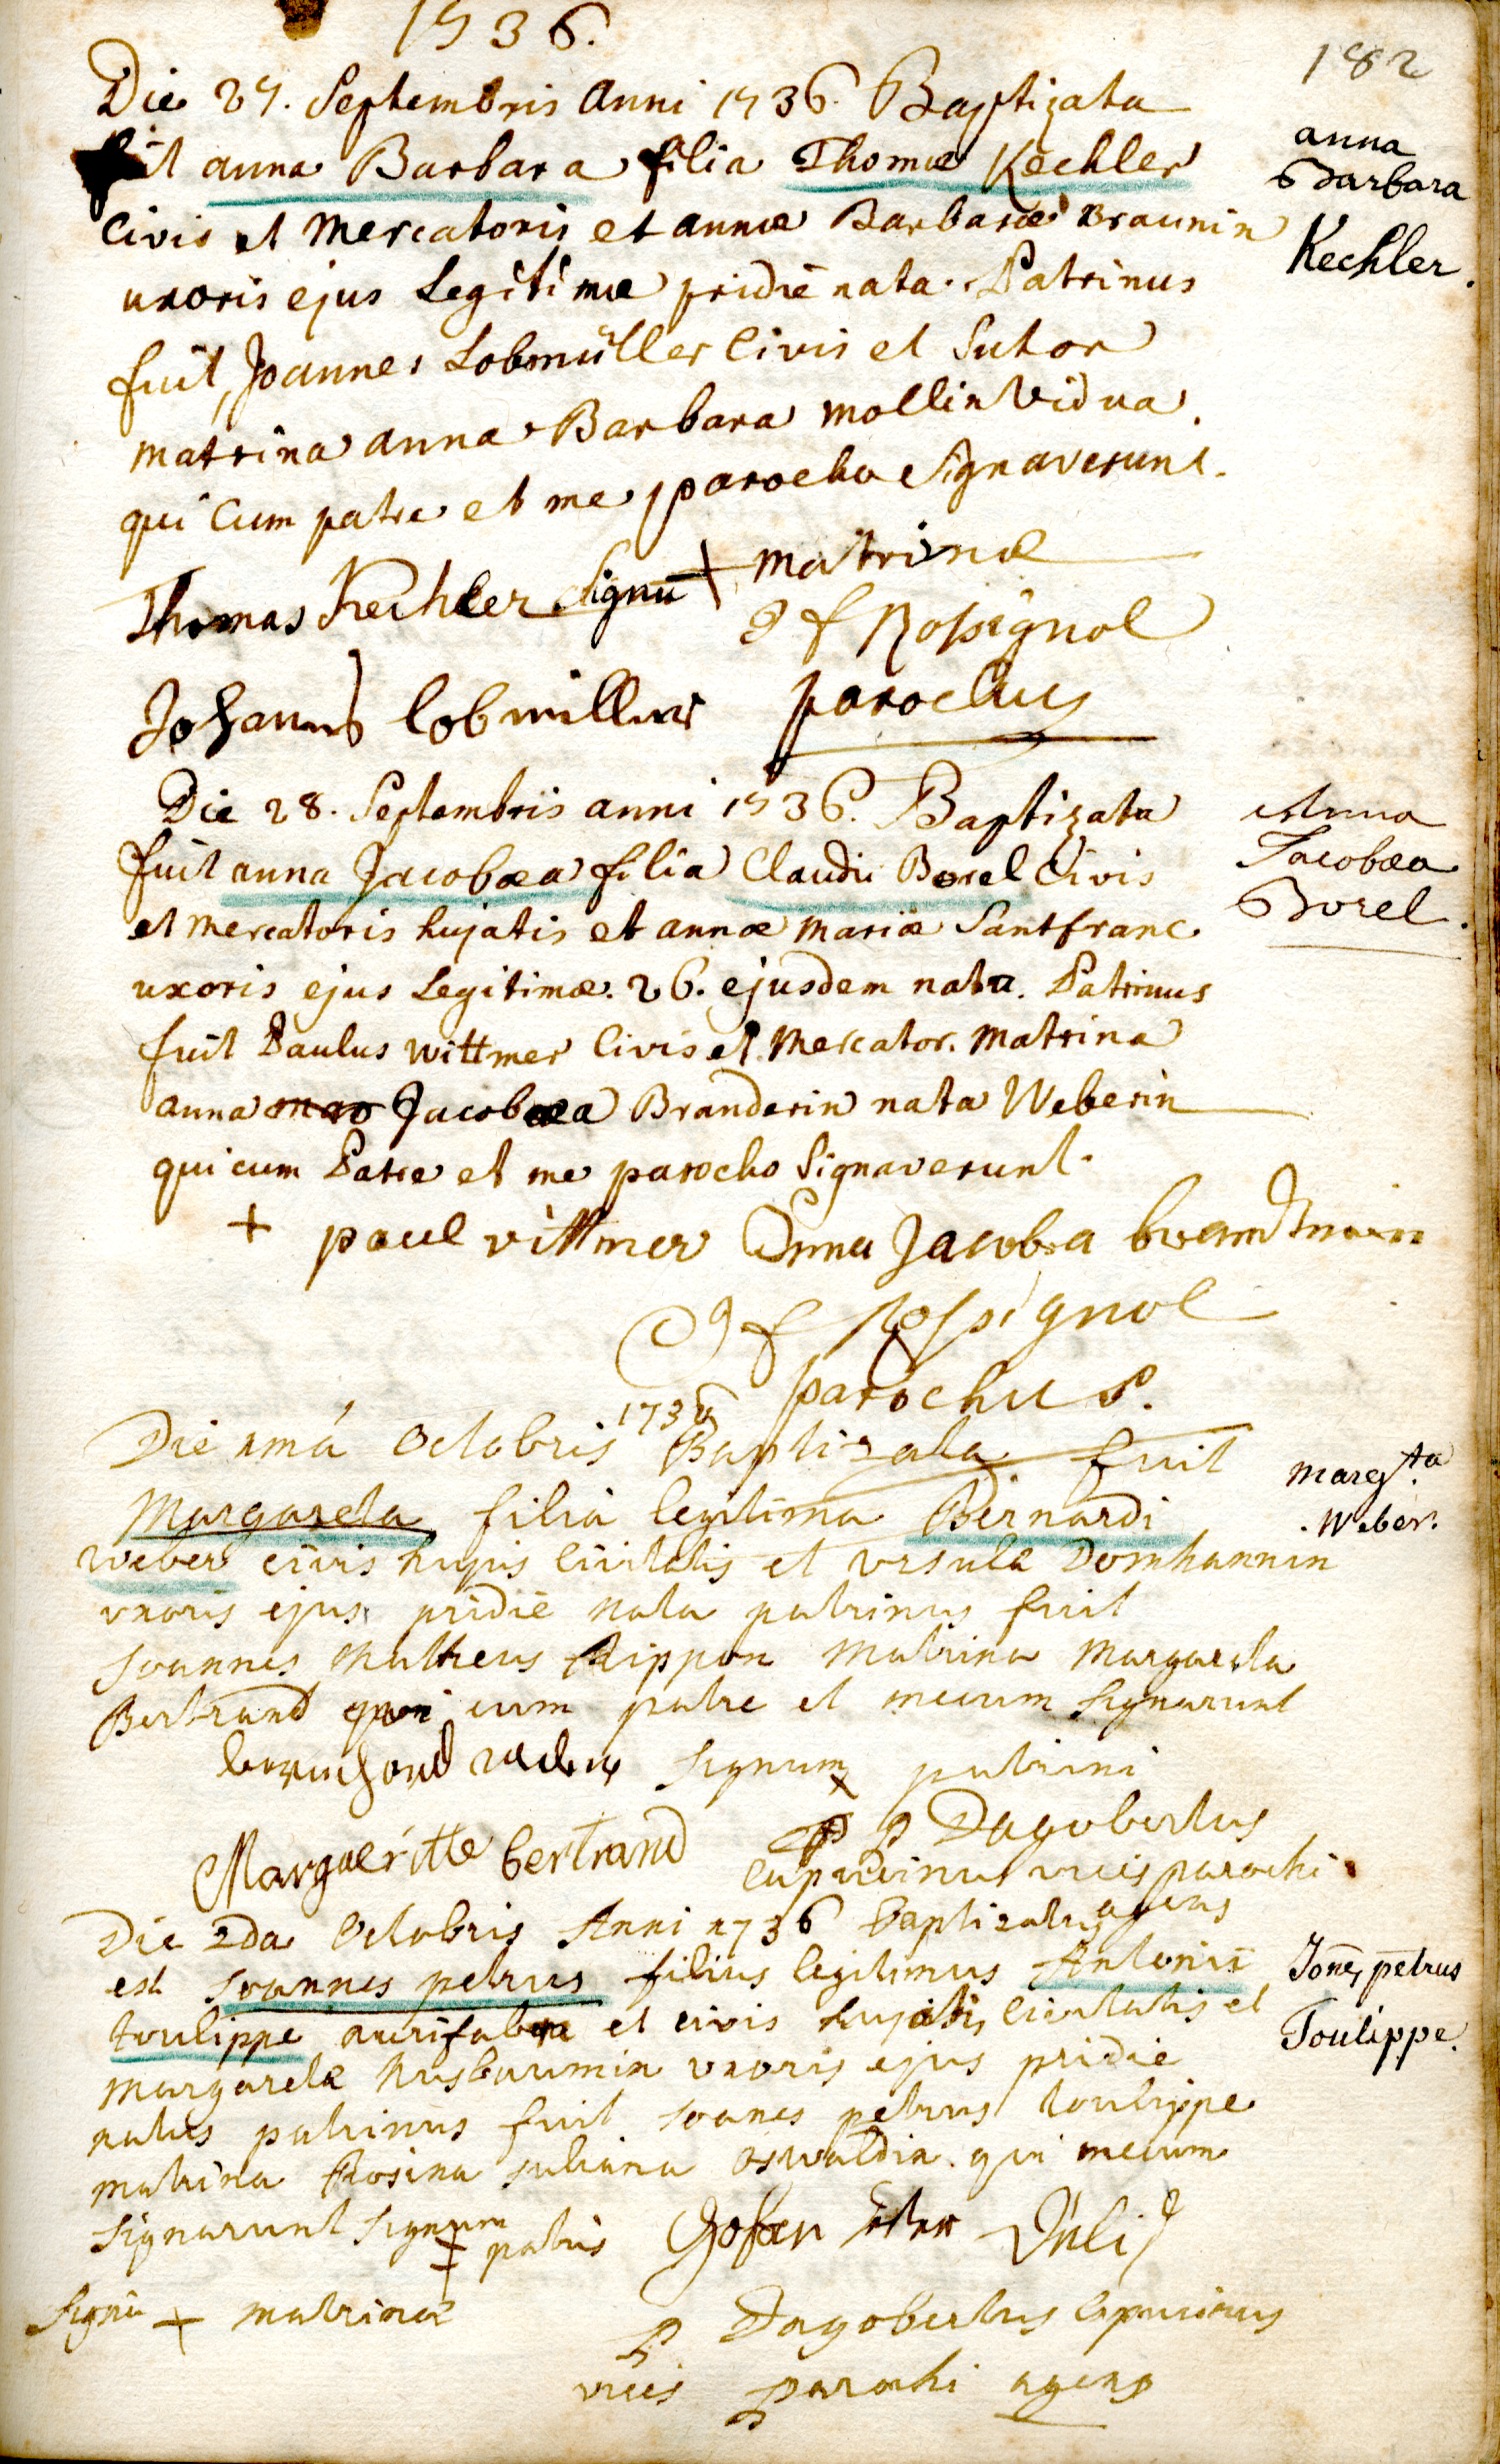 1736.
182
Die 27. Septembris Anni 1736. Baptizata
fuit anna Barbara filia Thomæ Kechler
Civis et Mercatoris et annæ Barbaræ Braunin
uxoris ejus Legitimæ pridie nata. Patrinus
fuit, Joannes Lobmüller Civis et Sutor
matrina anna Barbara mollin Vidua.
qui Cum patre et me parocho Signaverunt.
anna
Barbara
Kechler.
Thomas Kechler Signū + matrinæ
J f Rossignol
Johannes lobmiller parochus
Die 28. Septembris anni 1736. Baptizata
fuit anna Jacobæa filia Claudii Borel Civis
et mercatoris hujatis et annæ mariæ Santfranc
uxoris ejus Legitimæ. 26. ejusdem nata. Patrinus
fuit Paulus wittmer Civis et Mercator. Matrina
anna Jacobæa Branderin nata Weberin
qui cum Patre et me parocho Signaverunt.
Anna
Jacobæa
Borel.
+ paul vittmer Anna Jacobea
J f Rossignol
parochus.
Die 1mâ Octobris 1736 Baptizata fuit
Margareta filia legitima Bernardi
weber civis hujus Civitatis et vrsulæ Domhannin
vxoris ejus pridie nata patrinus fuit
Joannes Matheus Rippon Matrina Margareta
Bertrand qui cum patre et mecum signarunt
marg.ta
Weber.
bernhard weber signum x patrini
Margueritte bertrand P P Dagobertus
capucinus vices parochi
agens
Die 2da Octobris Anni 1736 baptizatus
est Joannes petrus filius legitimus Antonii
toulippe aurifabri et civis hujatis Civitatis et
margaretæ Nusbaumin vxoris ejus pridie
natus patrinus fuit Joanes petrus toulippe
matrina Rosina Juliana oswaldin. qui mecum
signarunt signum + patris
Jones petrus
Toulippe.
Signū + matrinæ
P Dagobertus capucinus
vices parochi agens